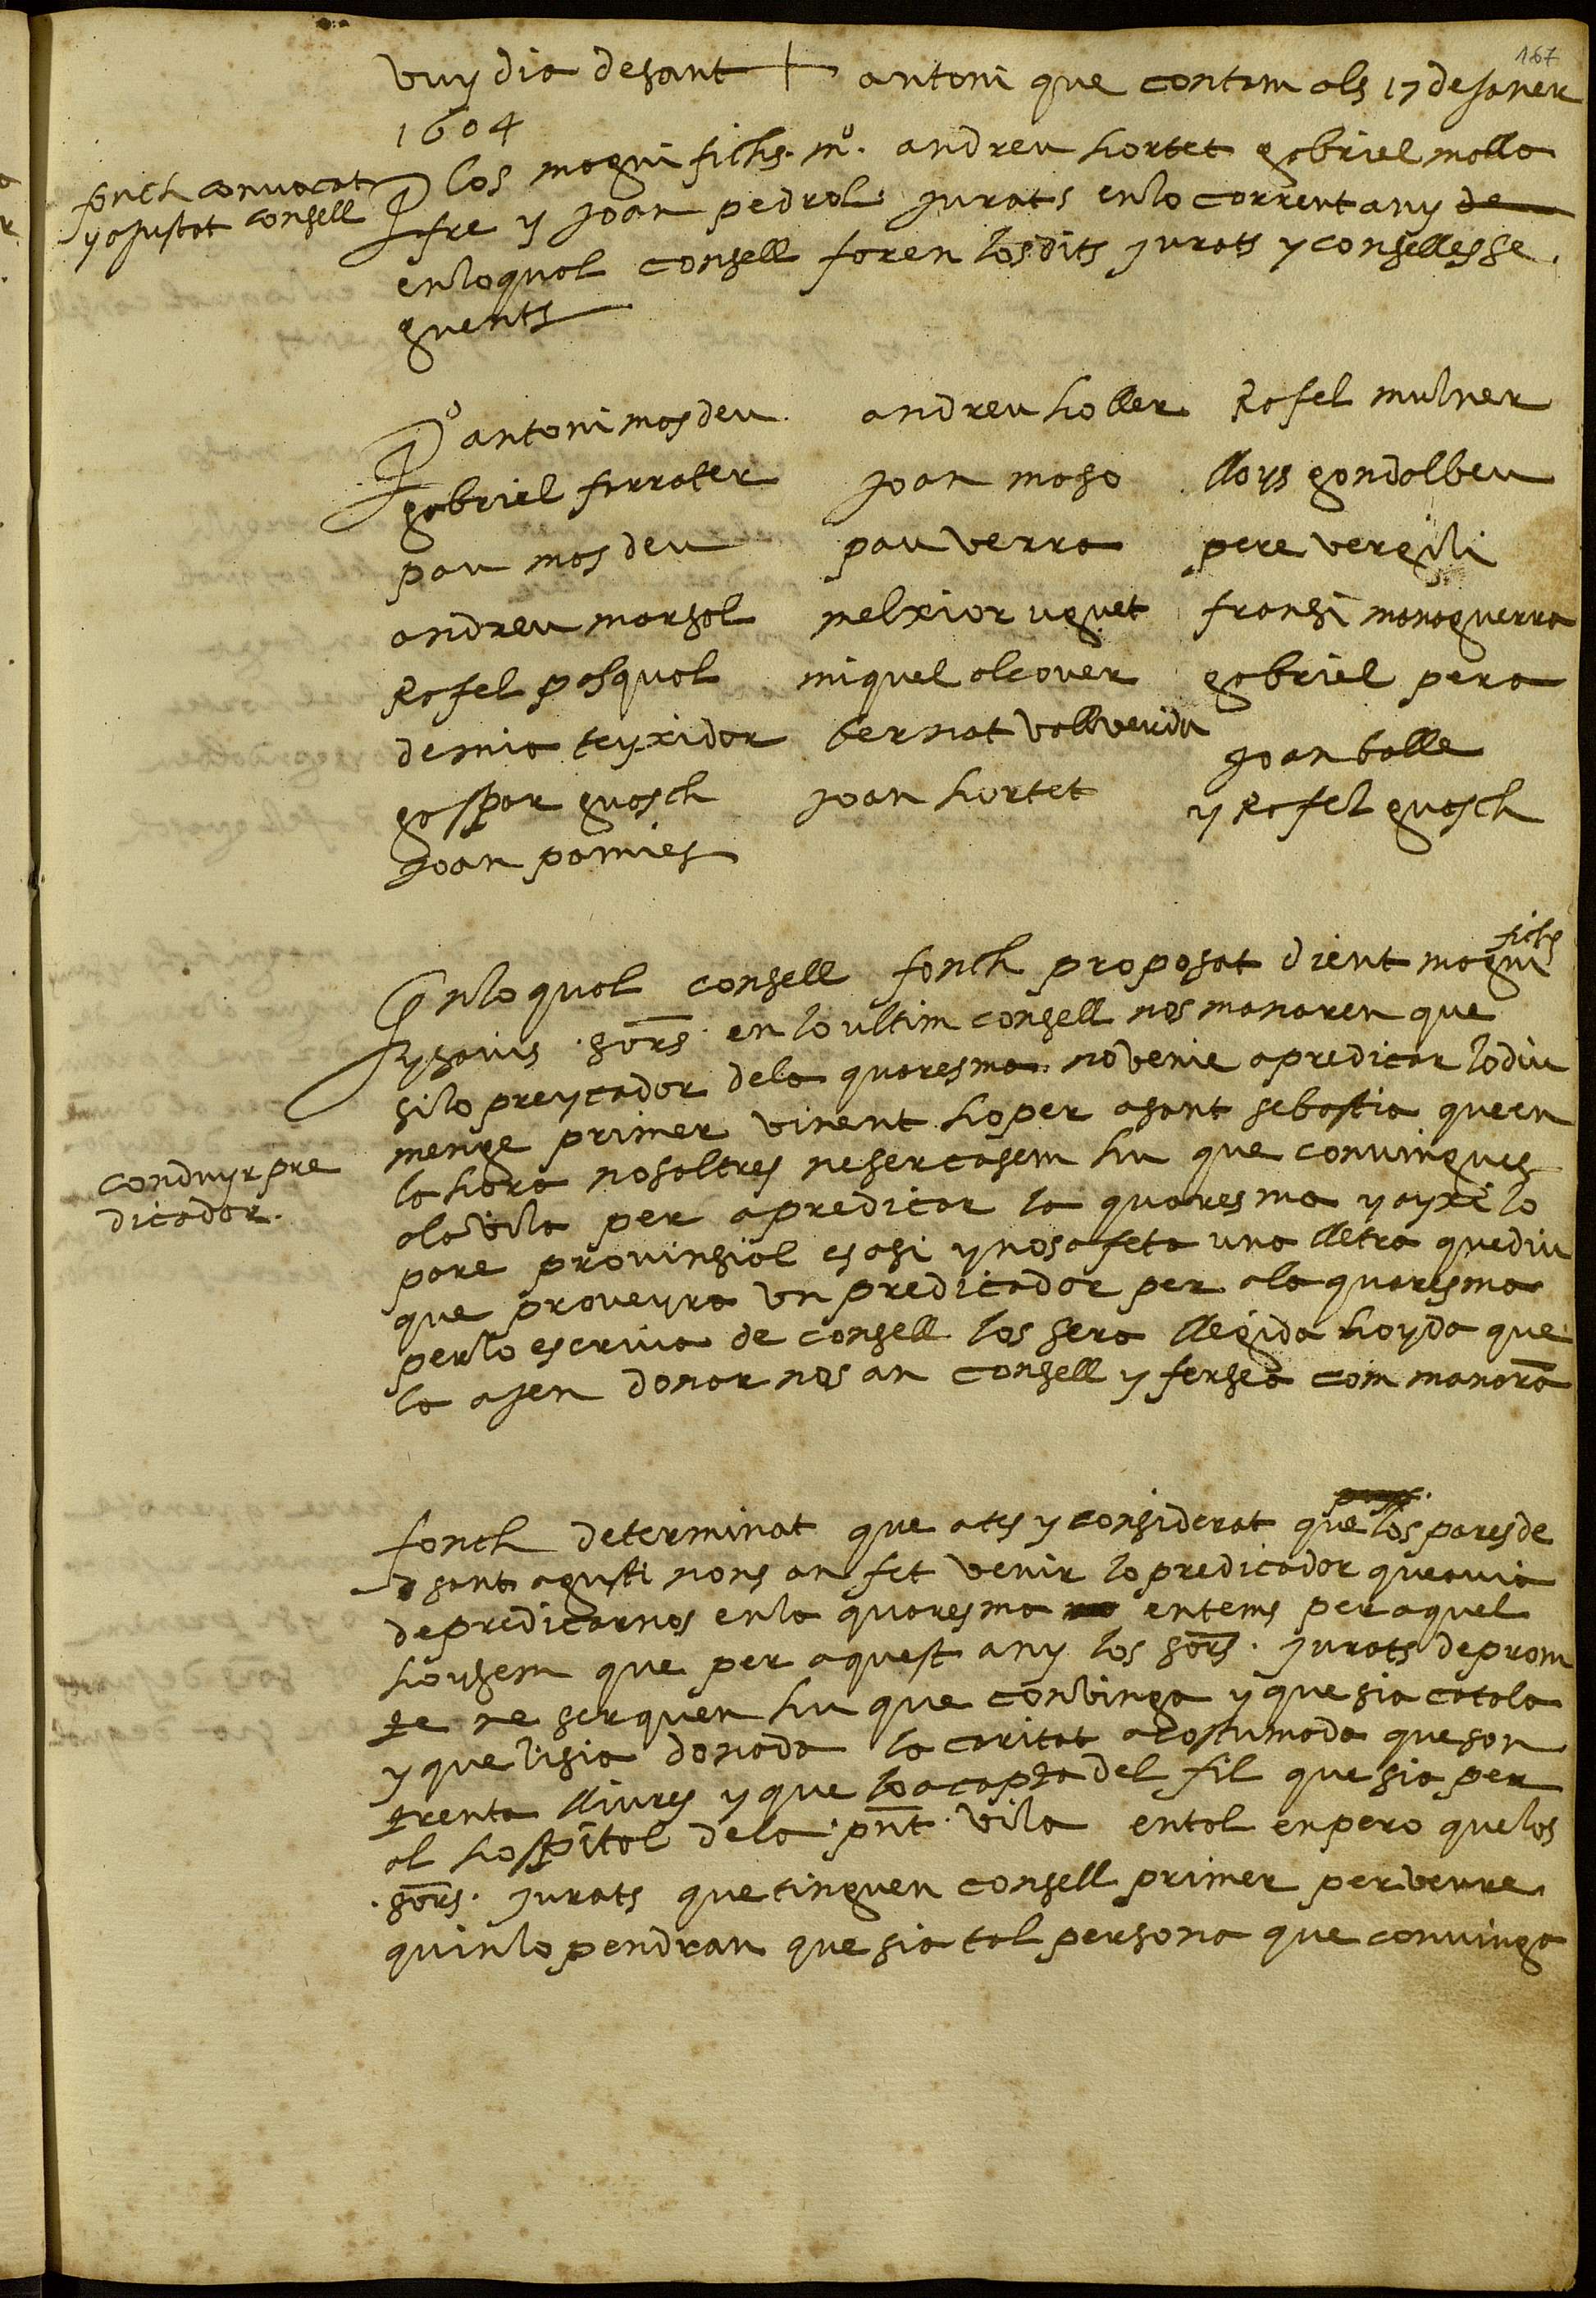 167
vuy dia de sant + antoni que contam als 17 de janer
1604
fonch convocat
y ajustat consell
P los magnifichs. mº. andreu hortet gabriel molla
fre y joan pedrol jurats en lo corrent any de
en lo qual consell foren los dits jurats y consellesse
guents
Pº antoni mas deu
gabriel ferrater
pau mas deu
andreu marsal
Rafel pasqual
demia teyxidor
gaspar guasch
joan pamies
andreu holler
joan maso
pau verra
melxior uguet
miquel alcover
bernat vallverdu
joan hortet
Rafel mulner
lloys gondolbeu
pere vergili
fransi monoguerra
gabriel pera
joan balle
y Rafel guasch
En lo qual consell fonch proposat dient magnifichs
y savis sors. en lo ultim consell nos manaren que
si lo preycador de la quaresma no venie a predicar lo diu
menge primer vinent ho per a sant sebastia que en
la hora nosaltres ne sercasem hu que convingues
a la vila per a predicar la quaresma y ayxi lo
pare provinsial es asi y nos a feta una lletra que diu
que proveyra un predicador per a la quaresma
per lo escriva de consell los sera llegida hoyda que
la ajen donar nos an consell y ferse a com manara
conduyr pre
dicador.
fonch determinat que ates y considerat que los pares de
sant agusti nons an fet venir lo predicador que avia
de predicarnos en la quaresma en tems per aquel
hoysem que per aquest any los sors. jurats de prom
te ne serquen hu que convinga y que sia catala
y que li sia donada la caritat acostumada que son
trenta lliures y que la acapta del fil que sia per
al hospital de la pnt. vila en tal enpero que los
sors. jurats que tinguen consell primer per veure
quin lo pendran que sia tal persona que convinga